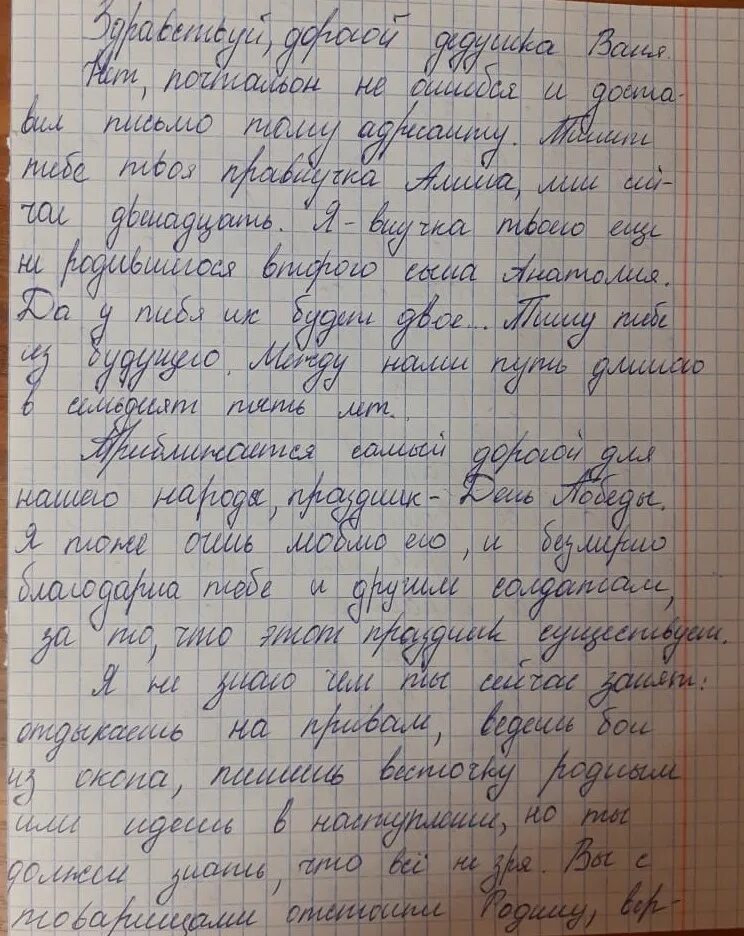 Здравствуй, дорогой дедушка Ваня.
Нет, почтальон не ошибся и доста-
вил письмо тому адресанту. Пишет
тебе твоя правнучка Алина, мне сей-
час двенадцать. Я - внучка твоего еще
не родившегося второго сына Анатолия.
Да у тебя их будет двое... Пишу тебе
из будущего. Между нами путь длиною
в семьдесят пять лет.
Приближается самый дорогой для
нашего народа, праздник - День Победы.
Я тоже очень люблю его, и безмерно
благодарна тебе и другим солдатам,
за то, что этот праздник существует.
Я не знаю чем ты сейчас занят:
отдыхаешь на привале, ведешь бои
из окопа, пишешь весточку родным
или идешь в наступление, но ты
должен знать, что всё не зря. Вы с
товарищами отстоите Родину, вер-